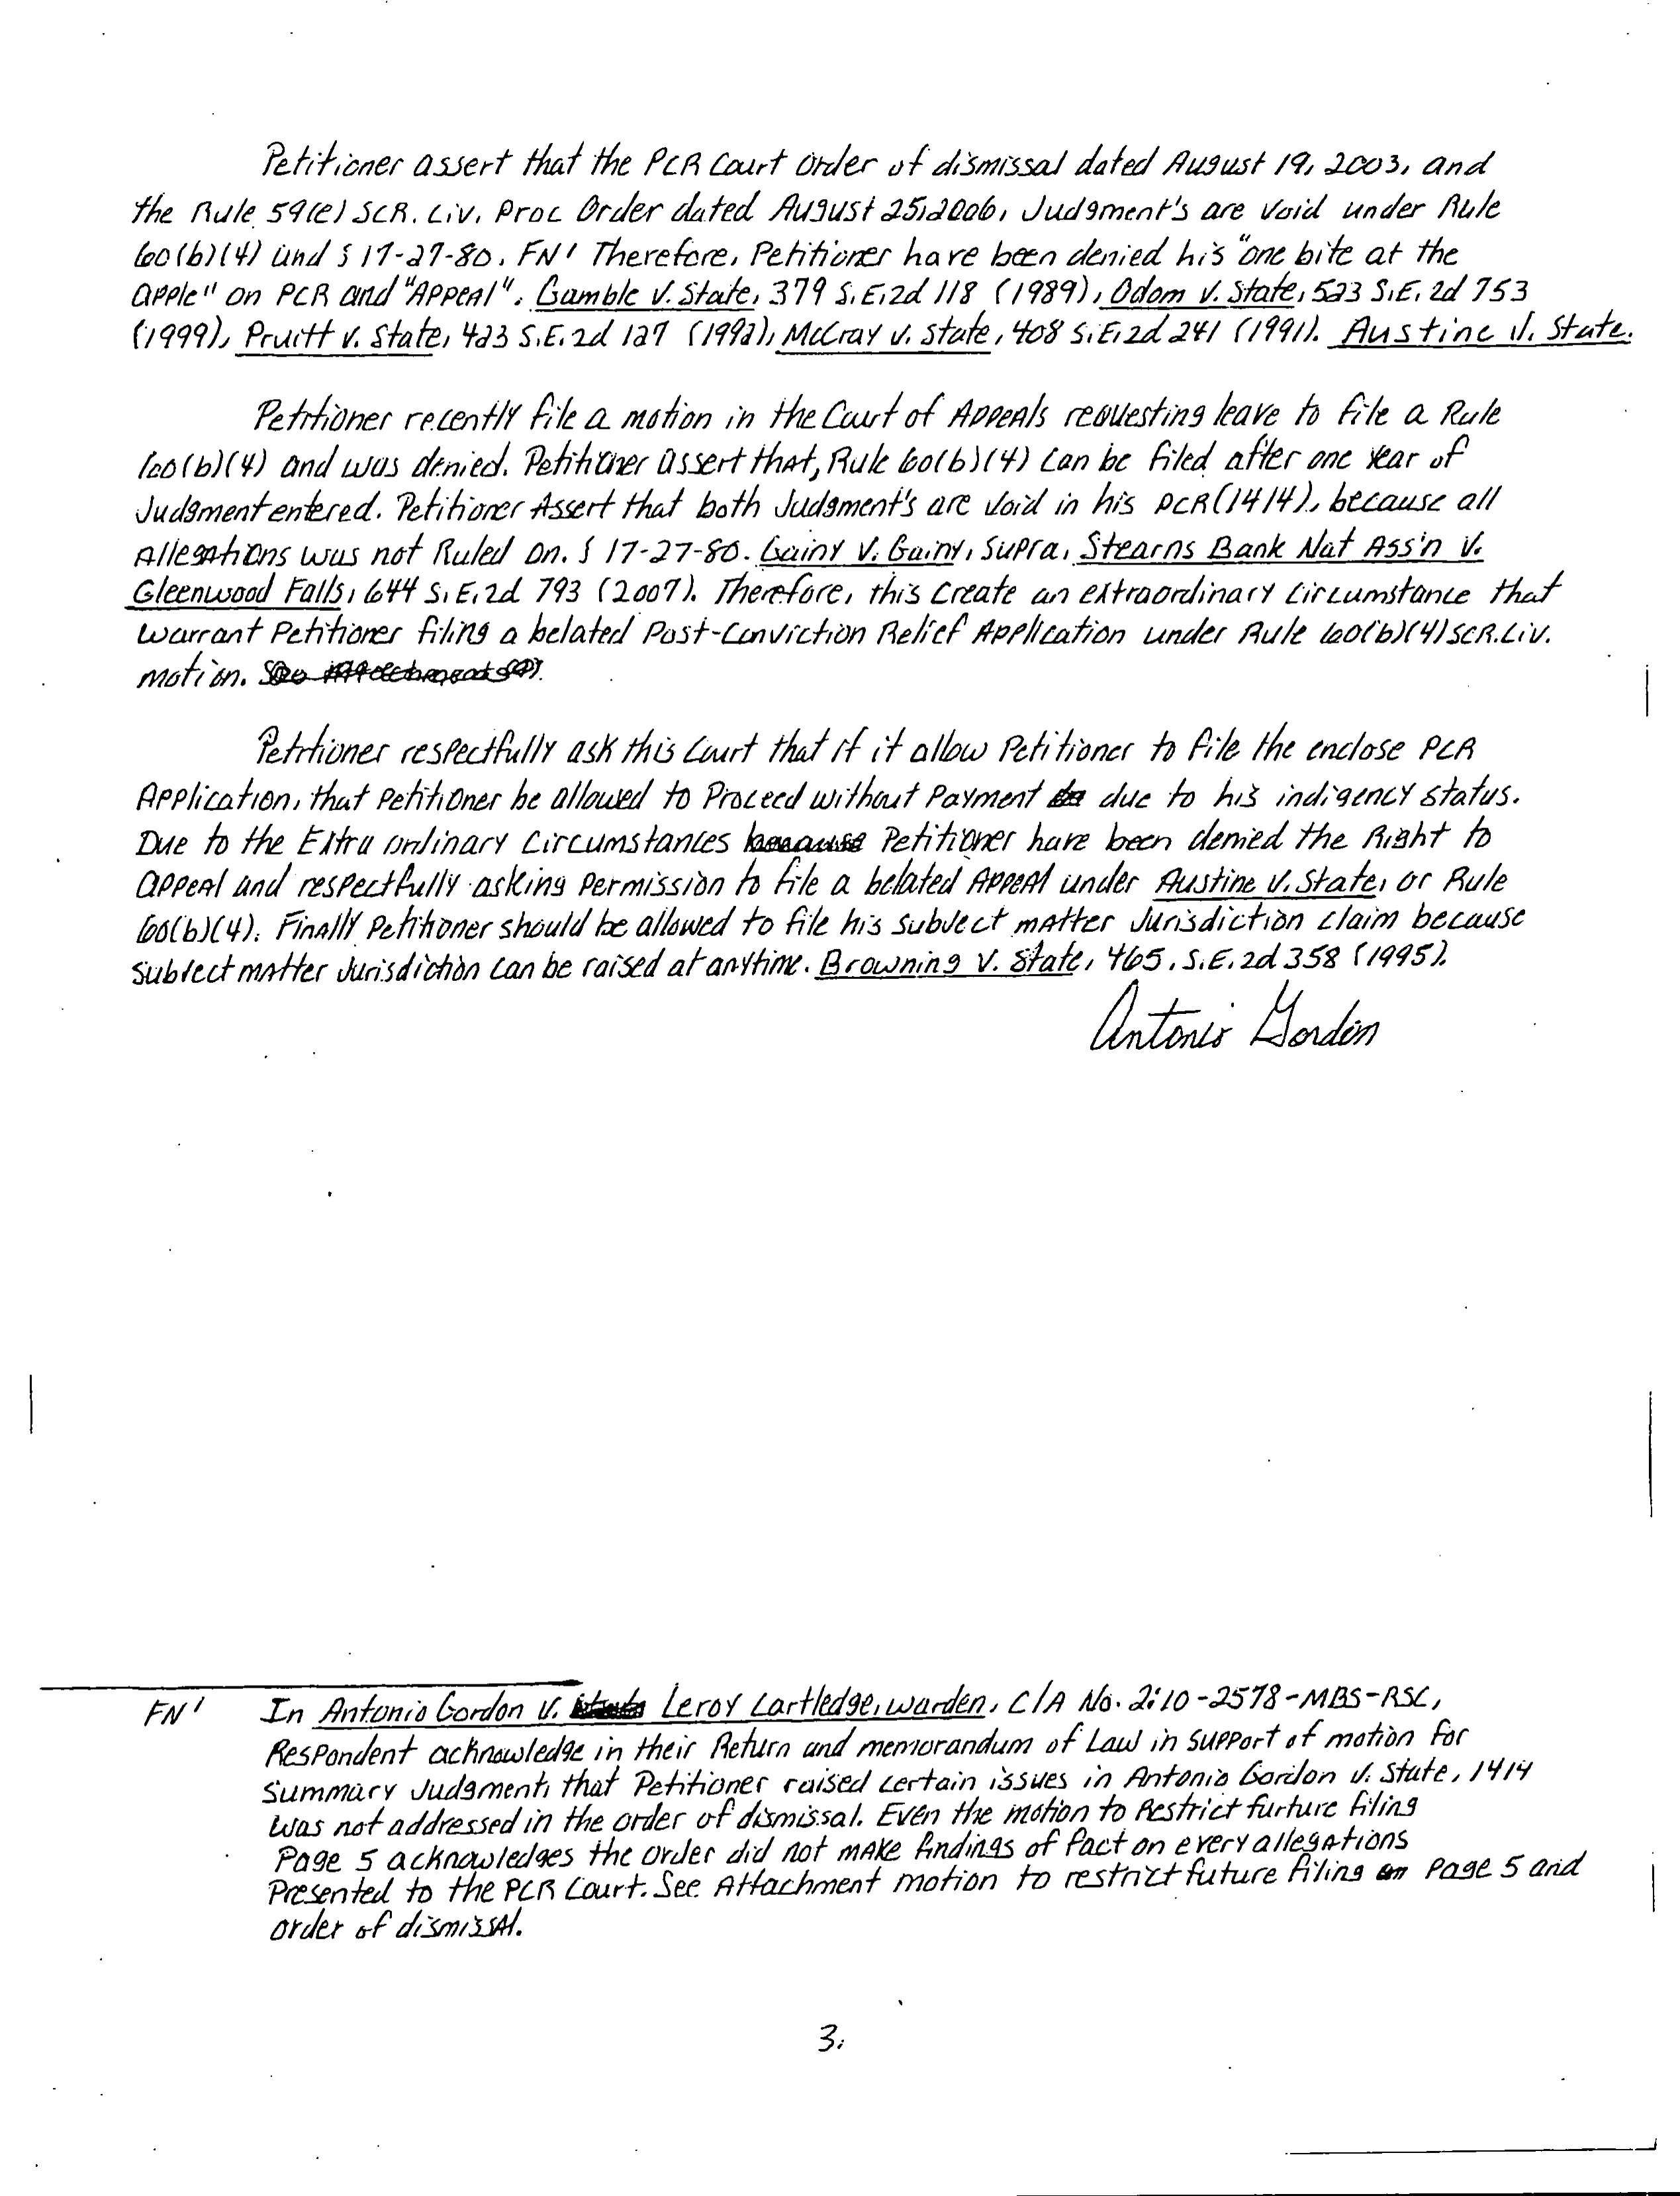 Petitioner assert that the PCR Court Order of dismissal dated August 19, 2003, and
the Rule 59(e) SCR. Civ. Proc Order dated August 25, 2006, Judgment's are void under Rule
60(b)(4) and § 17-27-80. FN1 Therefore, Petitioner have been denied his "one bite at the
apple" on PCR and "Appeal". Gamble v. State, 379 S.E.2d 118 (1989), Odom v. State, 523 S.E. 2d 753
(1999), Pruitt v. State, 423 S.E. 2d 127 (1992), McCray v. State, 408 S.E. 2d 241 (1991). Austine v. State.
Petitioner recently file a motion in the Court of Appeals requesting leave to file a Rule
60(b)(4) and was denied. Petitioner assert that, Rule 60(b)(4) can be filed after one year of
Judgment entered. Petitioner Assert that both Judgment's are void in his PCR (1414), because all
Allegations was not Ruled on. § 17-27-80. Gainy v. Gainy, supra, Stearns Bank Nat Ass'n v.
Gleenwood Falls, 644 S.E. 2d 793 (2007). Therefore, this create an extraordinary circumstance that
warrant Petitioner filing a belated Post-Conviction Relief Application under Rule 60(b)(4) SCR. Civ.
motion.
Petitioner respectfully ask this Court that if it allow Petitioner to file the enclose PCR
Application, that Petitioner be allowed to Proceed without Payment due to his indigency status.
Due to the Extra ordinary Circumstances because Petitioner have been denied the Right to
appeal and respectfully asking permission to file a belated Appeal under Austine v. State, or Rule
60(b)(4). Finally Petitioner should be allowed to file his subject matter Jurisdiction claim because
subject matter Jurisdiction can be raised at anytime. Browning v. State, 465. S.E. 2d 358 (1995).
Antonio Gordon
FN1 In Antonio Gordon v. Leroy Cartledge, warden, C/A No. 2:10-2578-MBS-RSC,
Respondent acknowledge in their Return and memorandum of Law in support of motion for
Summary Judgment, that Petitioner raised certain issues in Antonio Gordon v. State, 1414
was not addressed in the order of dismissal. Even the motion to Restrict furture filing
Page 5 acknowledges the order did not make findings of fact on every allegations
Presented to the PCR Court. See Attachment motion to restrict future filing Page 5 and
order of dismissal.
3.